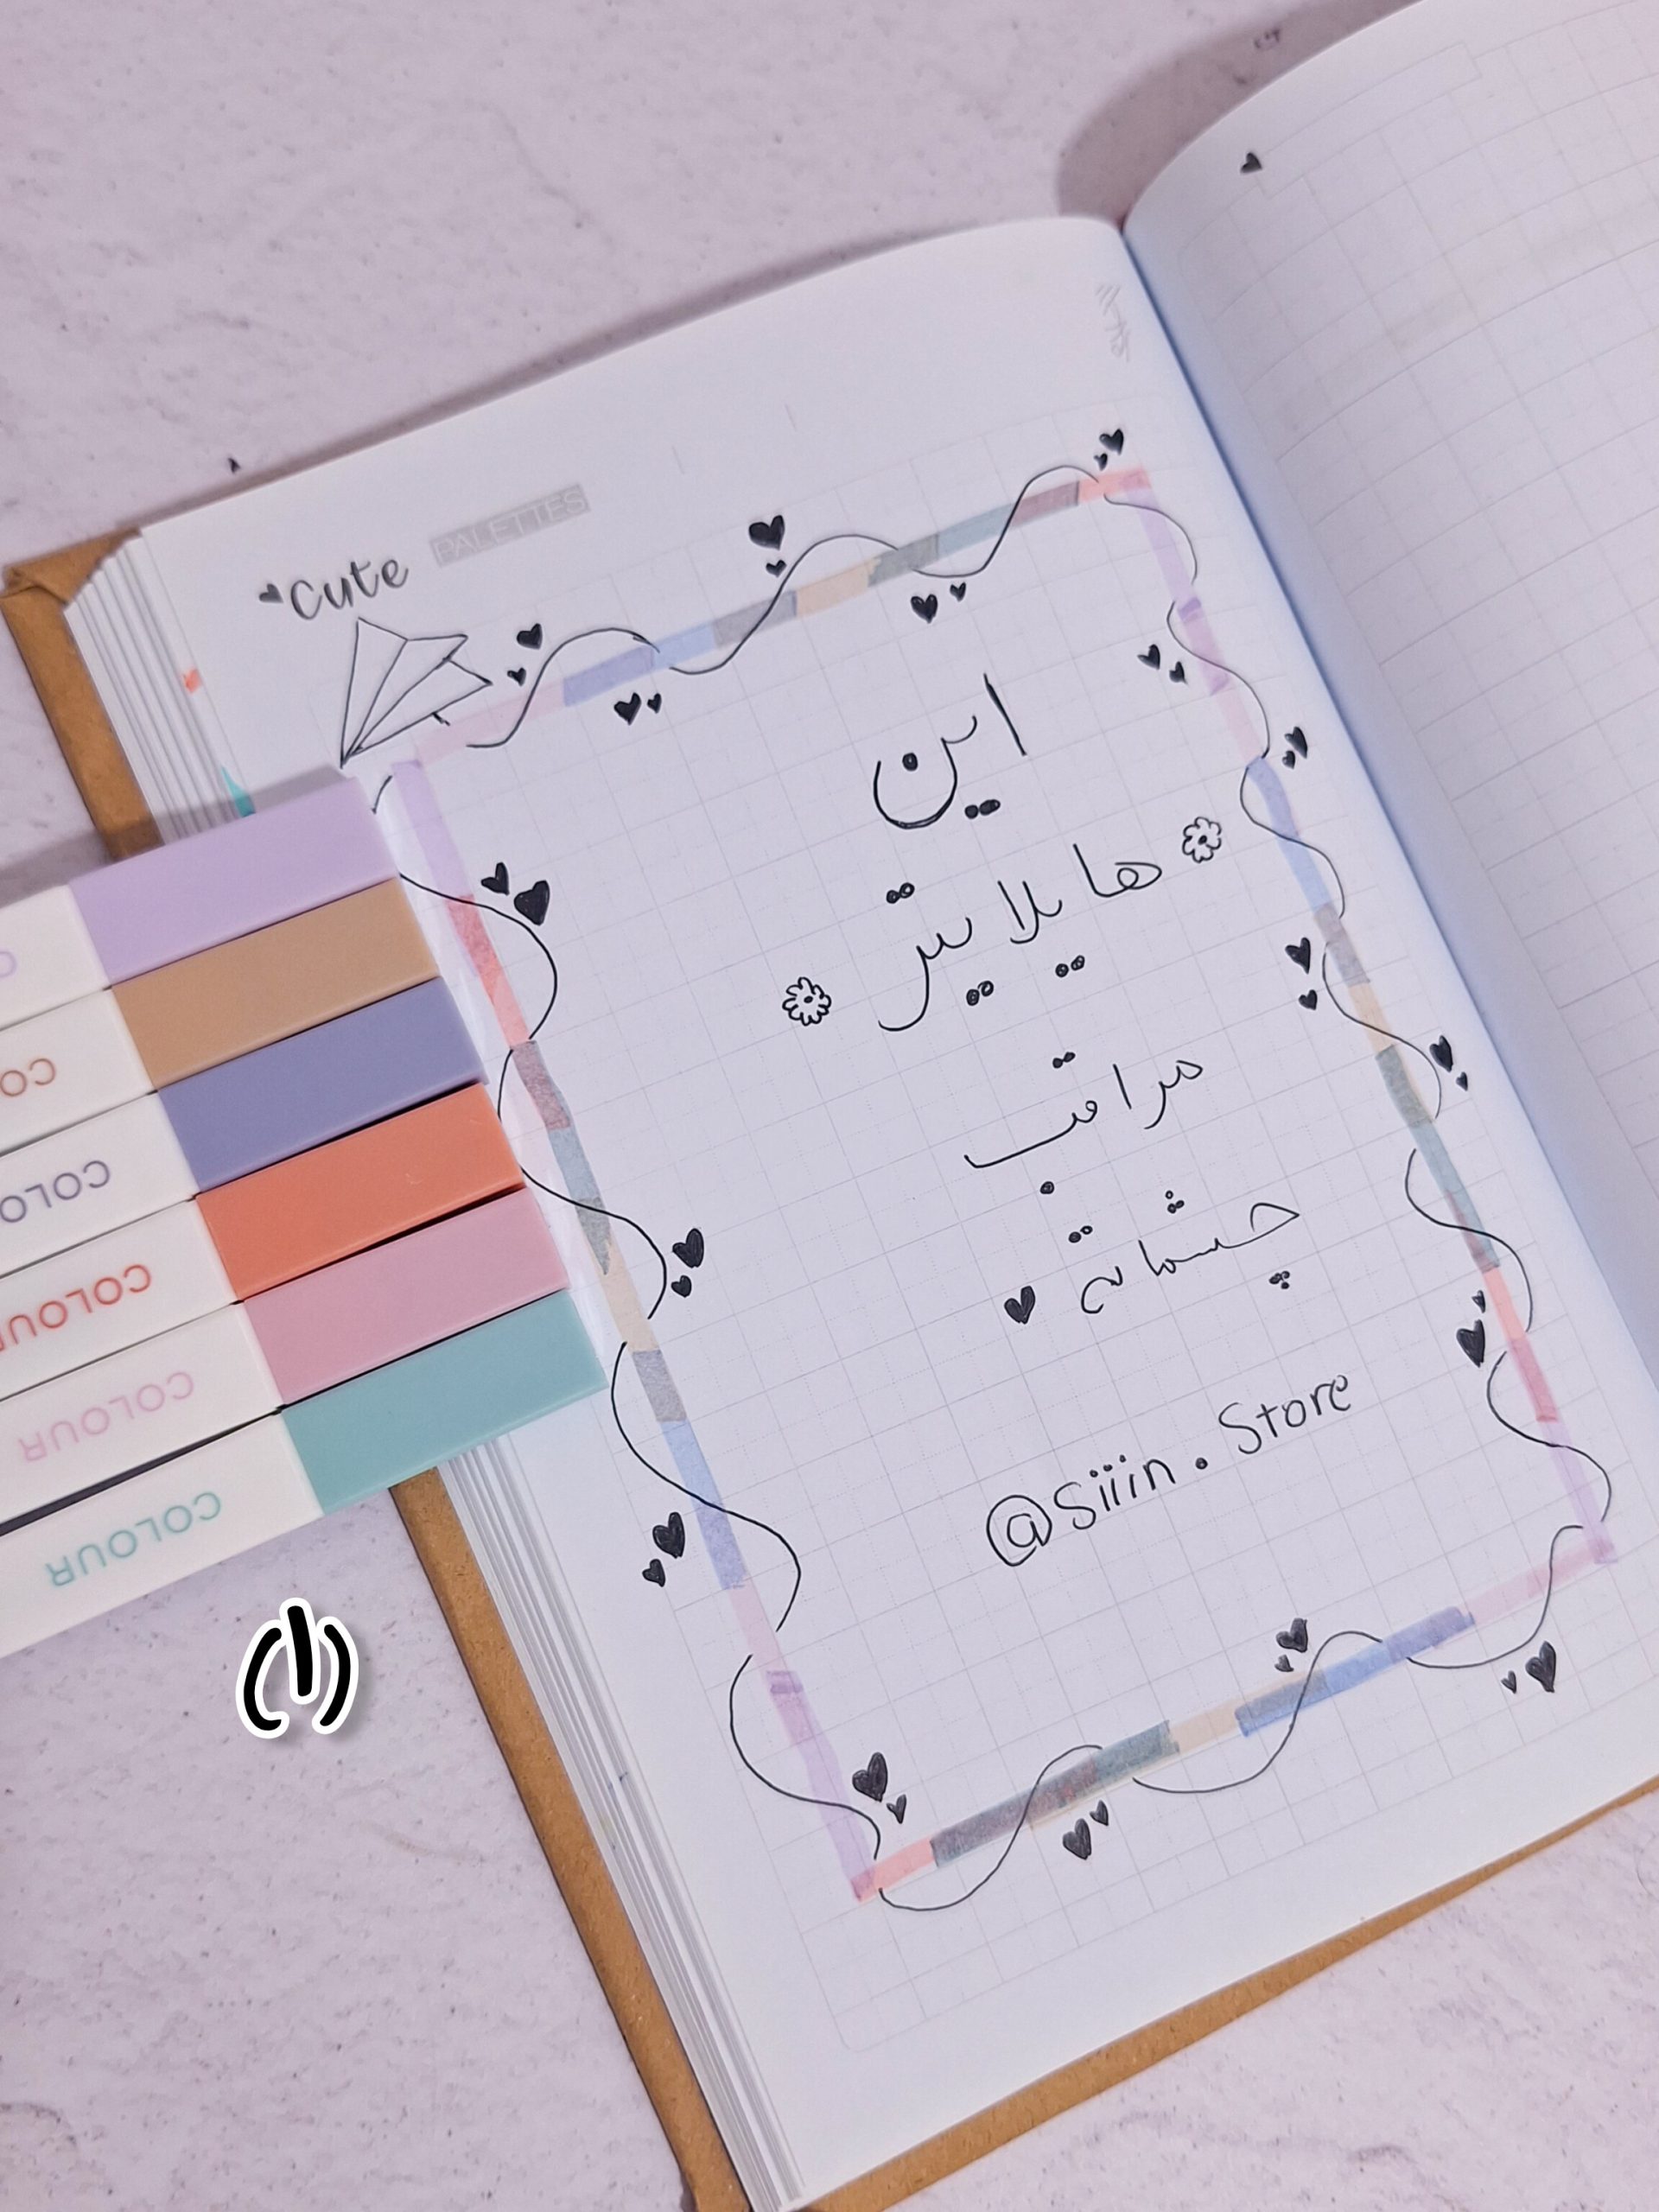 cute PALETTES
این
هایلایتر
مراقب
چشماته
@siiin.Store
COLOUR
COLOUR
COLOUR
COLO
CO
C
(1)